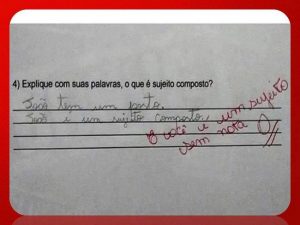 4) Explique com suas palavras, o que é sujeito composto?
João tem um porto.
João é um sujeito composto,
e você é um sujeito
sem nota 0//